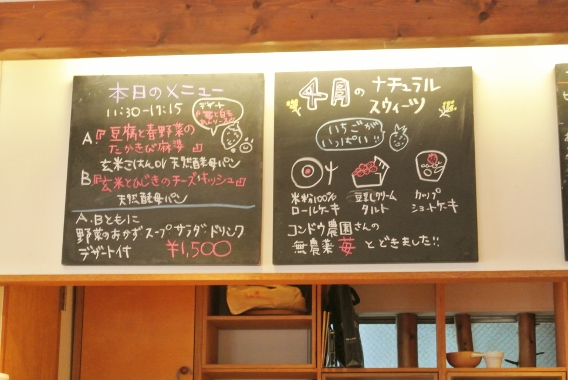 本日のメニュー
11:30-17:15
デザート
A.『豆腐と春野菜の
たかきび麻婆』
玄米ごはんor天然酵母パン
B『玄米とひじきのチーズキッシュ』
天然酵母パン
A.Bともに
野菜のおかず スープ サラダ・ドリンク
デザート付 ¥1,500
4月のナチュラル
スウィーツ
いちごが
いっぱい!!
米粉100%
ロールケーキ
豆乳クリーム
タルト
カップ
ショートケーキ
コンドウ農園さんの
無農薬苺とどきました!!